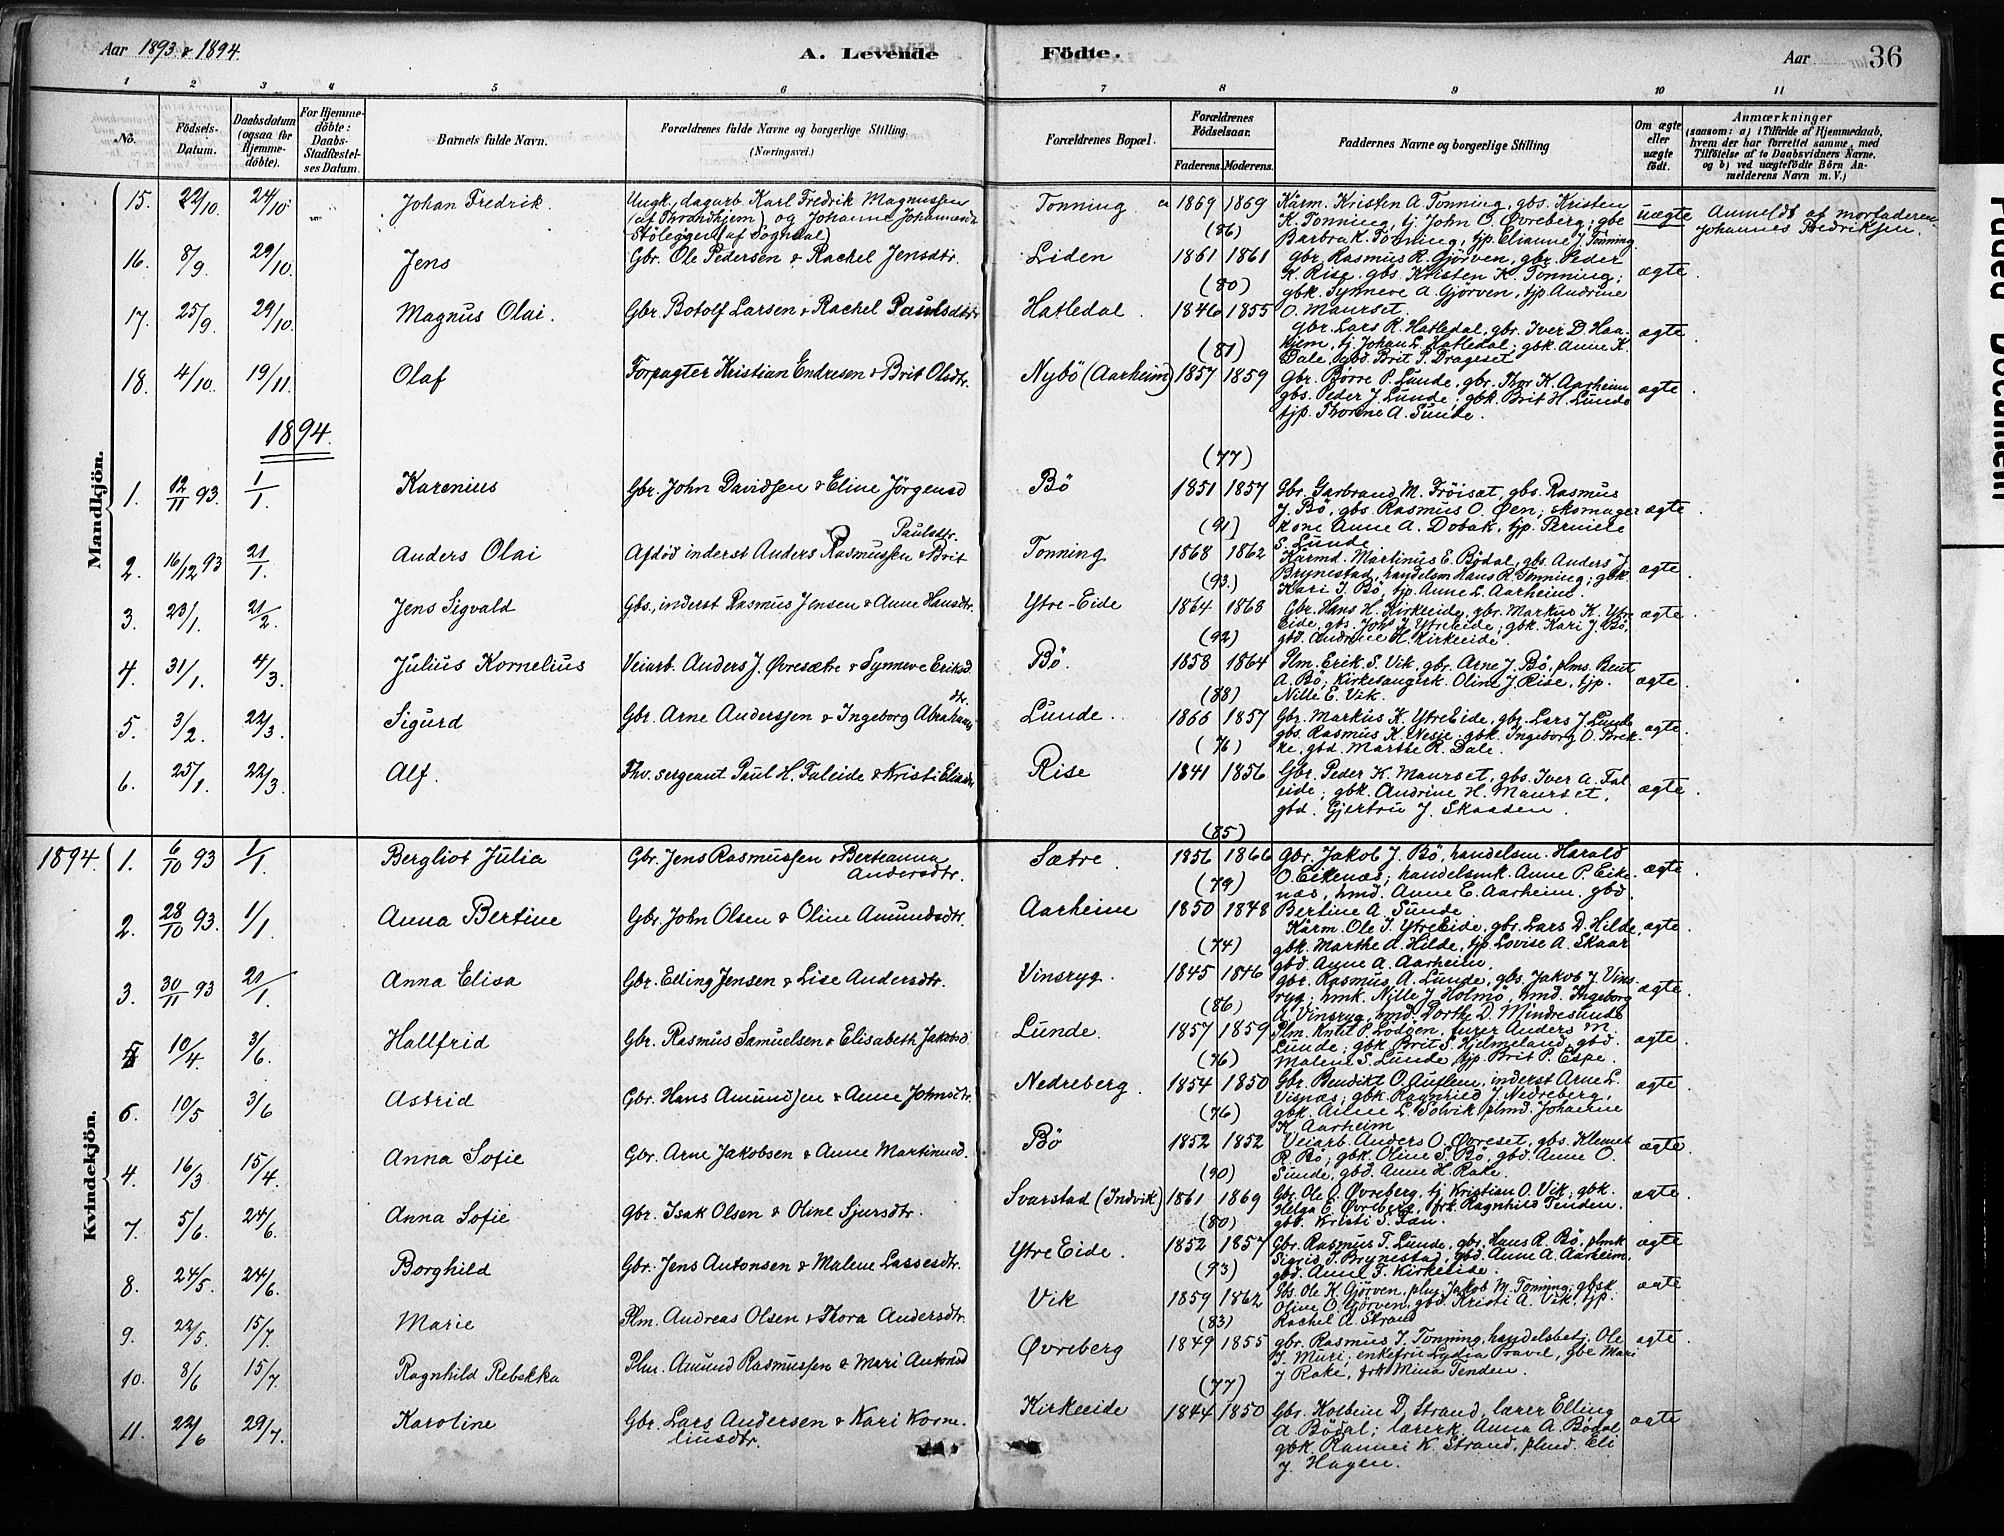 Aar 1893 & 1894.
A. Levende Födte.
Aar 36
1 2 3 4 5 6 7 8 9 10 11
No.
Födsels-Datum.
Daabsdatum (ogsaa for Hjemme-döbte).
For Hjemme-döbte: Daabs-Stadfæstel-ses Datum.
Barnets fulde Navn.
Forældrenes fulde Navne og borgerlige Stilling. (Næringsvei.)
Forældrenes Bopæl.
Forældrenes Födselsaar.
Faderens. Moderens.
Faddernes Navne og borgerlige Stilling
Om ægte eller uægte födt.
Anmærkninger
(saasom: a) i Tilfælde af Hjemmedaab,
hvem der har forrettet samme, med
Tilföielse af to Daabsvidners Navne.
og b) ved uægtefödte Börn An-
melderens Navn m. V.)
Mandkjön.
15. 22/10. 24/10. Johan Fredrik. Ungk., dagarb. Karl Fredrik Magnussen
(af Throndhjem) og Johanne Johannesdr.
Stölegger (af Sogndal)
Tonning 1869 1869 Kårm. Kristen A. Tonning, gbs. Kristen
K. Tonning, tj. John O. Øvreberg; gbe
Barbra K. Tonning, tjp. Elianne J. Tonning.
uægte Anmeldt af morfaderen
Johannes Fredriksen.
(86)
16. 8/9. 29/10. Jens Gbr. Ole Pedersen & Rachel Jensdtr. Liden 1861 1861 gbr. Rasmus R. Gjörven, gbr. Peder
K. Rise, gbs. Kristen K. Tonning;
gbk. Synneve A. Gjörven, tjp. Andrine
O. Maurset.
ægte.
(80)
17. 25/9. 29/10. Magnus Olai. Gbr. Botolf Larsen & Rachel Paulsdtr. Hatledal. 1846 1855
gbr. Lars R. Hatledal, gbr. Iver D. Haa-
heim, tj. Johan L. Hatledal; gbk. Anne K.
Dale, gbd. Brit P. Drageset
ægte.
(81)
18. 4/10. 19/11. Olaf Forpagter Kristian Endresen & Brit Olsdtr. Nybö (Aarheim) 1857 1859 Gbr. Börre P. Lunde, gbr. Thor K. Aarheim
gbs. Peder J. Lunde; gbk. Brit H. Lunde
tjp. Thorine A. Sunde.
ægte.
1894.
(77)
1. 12/11 93. 1/1 Karenius Gbr. John Davidsen & Eline Jörgensd Bö 1851 1857 Gbr. Garbrand M. Fröiset, gbs. Rasmus
J. Bö, gbs. Rasmus O. Øen; skomager
kone Anne A. Dobak, tjp. Perniele
S. Lunde
ægte.
(91)
2. 16/12 93 21/1. Anders Olai Afdöd inderst Anders Rasmussen & Brit
Paulsdtr.
Tonning 1868 1862 Kårmd. Martinus E. Bödal, gbs. Anders J.
Brynestad, handelsm Hans R. Tonning; gbk.
Kari J. Bö, tjp. Anne L. Aarheim.
ægte.
(93.)
3. 23/1. 21/2. Jens Sigvald Gbs., inderst Rasmus Jensen & Anne Hansdtr. Ytre-Eide 1864 1868 Gbr. Hans H. Kirkeeide, gbr. Markus K. Ytre
Eide, gbs. Jon J. YtreEide; gbk. Kari J. Bö,
gbd. Andrine H. Kirkeeide.
ægte.
(92)
4. 31/1. 4/3. Julius Kornelius Veiarb. Anders J. Øvresætre & Synneve Eriksd
dtr.
Bö. 1858 1864 Plm. Erik S. Vik, gbr. Arne J. Bö, plms. Bent
A. Bö; Kirkesangerk. Oline J. Rise, tjp.
Nille E. Vik.
ægte.
(88)
5. 3/2. 22/3. Sigurd Gbr. Arne Anderssen & Ingeborg Abrahams Lunde. 1866 1857 Gbr. Markus K. YtreEide, gbr. Lars J. Lunde
gbs. Rasmus K. Nesje; gbk. Ingeborg O. Brek-
ke, gbd. Marthe R. Dale.
ægte.
(76)
6. 25/1. 22/3. Alf. Fhv. sergeant Paul H. Faleide & Kristi Eliasdr Rise 1841 1856 Gbr. Peder K. Maurset, gbs. Iver A. Fal-
eide; gbk. Andrine H. Maurset,
gbd. Gjertru J. Skaaden.
ægte.
(85)
1894.
Kvindekjön.
1. 6/10 93 1/1 Bergliot Julia Gbr. Jens Rasmussen & Berteanna
Andersdtr.
Sætre. 1856 1866 Gbr. Jakob J. Bö, handelsm. Harald
O. Eikenæs; handelsmk. Anne P. Eike-
næs, hmd. Anne E. Aarheim, gbd.
Bertine A. Sunde
ægte.
(79)
2. 28/10 93. 1/1. Anna Bertine Gbr. John Olsen & Oline Amundsdtr. Aarheim 1850 1848
Kårm. Ole J. YtreEide, gbr. Lars D. Hilde,
gbk. Marthe A. Hilde, tjp. Lovise A. Skaar
gbd. Anne A. Aarheim.
ægte.
(74)
3. 30/11 93 21/1. Anna Elisa Gbr. Elling Jensen & Lise Andersdtr. Vinsryg. 1845 1846 gbr. Rasmus A. Lunde, gbs. Jakob J. Vins-
ryg; hmk. Nille J. Holmö, hmd. Ingeborg
A. Vinsryg, hmd. Dorthe D. Mindresunde
ægte.
(86)
5. 10/4. 3/6. Hallfrid Gbr. Rasmus Samuelsen & Elisabeth Jakobsd Lunde. 1857 1859 Plm. Knut P. Lodöen, furer Anders M.
Lunde; gbk. Brit S. Hjelmeland, gbd.
Malene S. Lunde, tjp. Brit P. Espe.
ægte.
(76)
6. 10/5 3/6 Astrid Gbr. Hans Amundsen & Anne Johnsdtr. Nedreberg. 1854 1850 Gbr. Bendikt O. Auflem, inderst Arne L.
Visnæs; gbk. Ragnhild J. Nedreberg,
gbk. Ailine L. Solvik, plmd. Johanne
K. Aarheim
ægte
(76)
4. 16/3 15/4. Anna Sofie Gbr. Arne Jakobsen & Anne Martinusd. Bö 1852 1852 Veiarb. Anders O. Øvreset, gbs. Klemet
R. Bö; gbk. Oline S. Bö, gbd. Anne O.
Sunde, gbd. Anne H. Rake.
ægte.
(90)
7. 5/6. 24/6. Anna Sofie Gbr. Isak Olsen & Oline Sjursdtr. Svarstad (Indvik) 1861 1869 Gbr. Ole O. Øvreberg, tj. Kristian O. Vik, gbk.
Helga E. Øvreberg, frk. Ragnhild Tenden.
gbd. Kristi S. Tan.
ægte.
(80)
8. 24/5. 24/6. Borghild Gbr. Jens Antonsen & Malene Lassesdtr. YtreEide. 1852 1857 Gbr. Rasmus T. Lunde, gbr. Hans R. Bö, plmk
Sigrid S. Brynestad, gbd. Anne A. Aarheim,
gbd. Anne T. Kirkeeide.
ægte
(93)
9. 22/5. 15/7. Marie Plm. Andreas Olsen & Thora Andersdtr. Vik 1859 1862 Gbs. Ole K. Gjörven, plms Jakob M. Tonning; gbsk
Oline O. Gjörven, gbd. Kristi A. Vik, tjp.
Rachel A. Strand
ægte.
(83)
10. 8/6 15/7. Ragnhild Rebekka Plm. Amund Rasmussen & Mari Antonsd Øvreberg 1849 1855 gbr. Rasmus J. Tonning, handelsbetj. Ole
J. Muri; enkefru Lydia Pravel, gbe Mari
J. Rake, frk Mina Tenden.
ægte.
(77)
11. 22/6 29/7. Karoline Gbr. Lars Andersen & Kari Korne-
liusdtr.
Kirkeeide 1844 1850 Gbr. Kolbein D. Strand, lærer Elling
A. Bödal; lærerk. Anna A. Bödal
gbk. Rannei K. Strand, plmd. Eli
J. Hagen.
ægte.